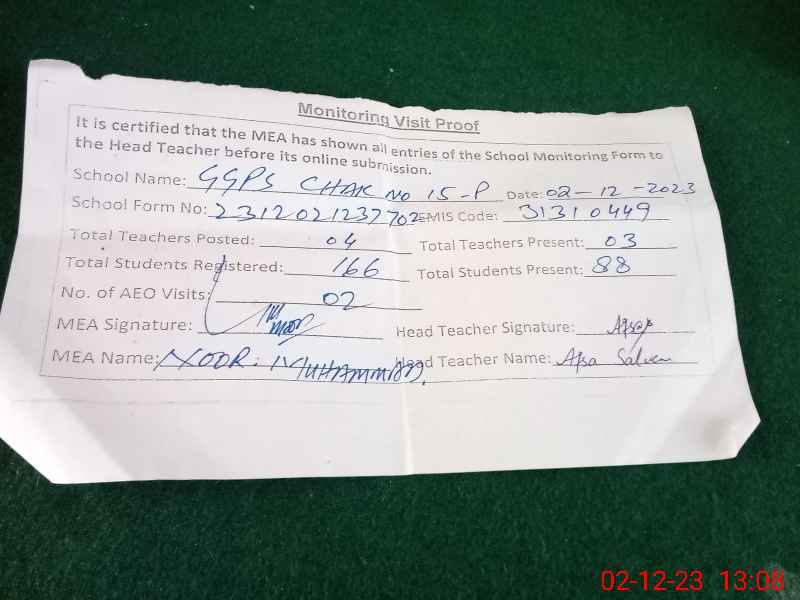 Monitoring Visit Proof
It is certified that the MEA has shown all entries of the School Monitoring Form to
the Head Teacher before its online submission.
School Name: GGPS CHAK No 15-P Date: 02-12-2023
School Form No: 2312021237702 EMIS Code: 31310449
Total Teachers Posted: 04 Total Teachers Present: 03
Total Students Registered: 166 Total Students Present: 88
No. of AEO Visits: 02
MEA Signature: Head Teacher Signature:
MEA Name: NOOR MUHAMMAD Head Teacher Name: Afsa
02-12-23 13:08